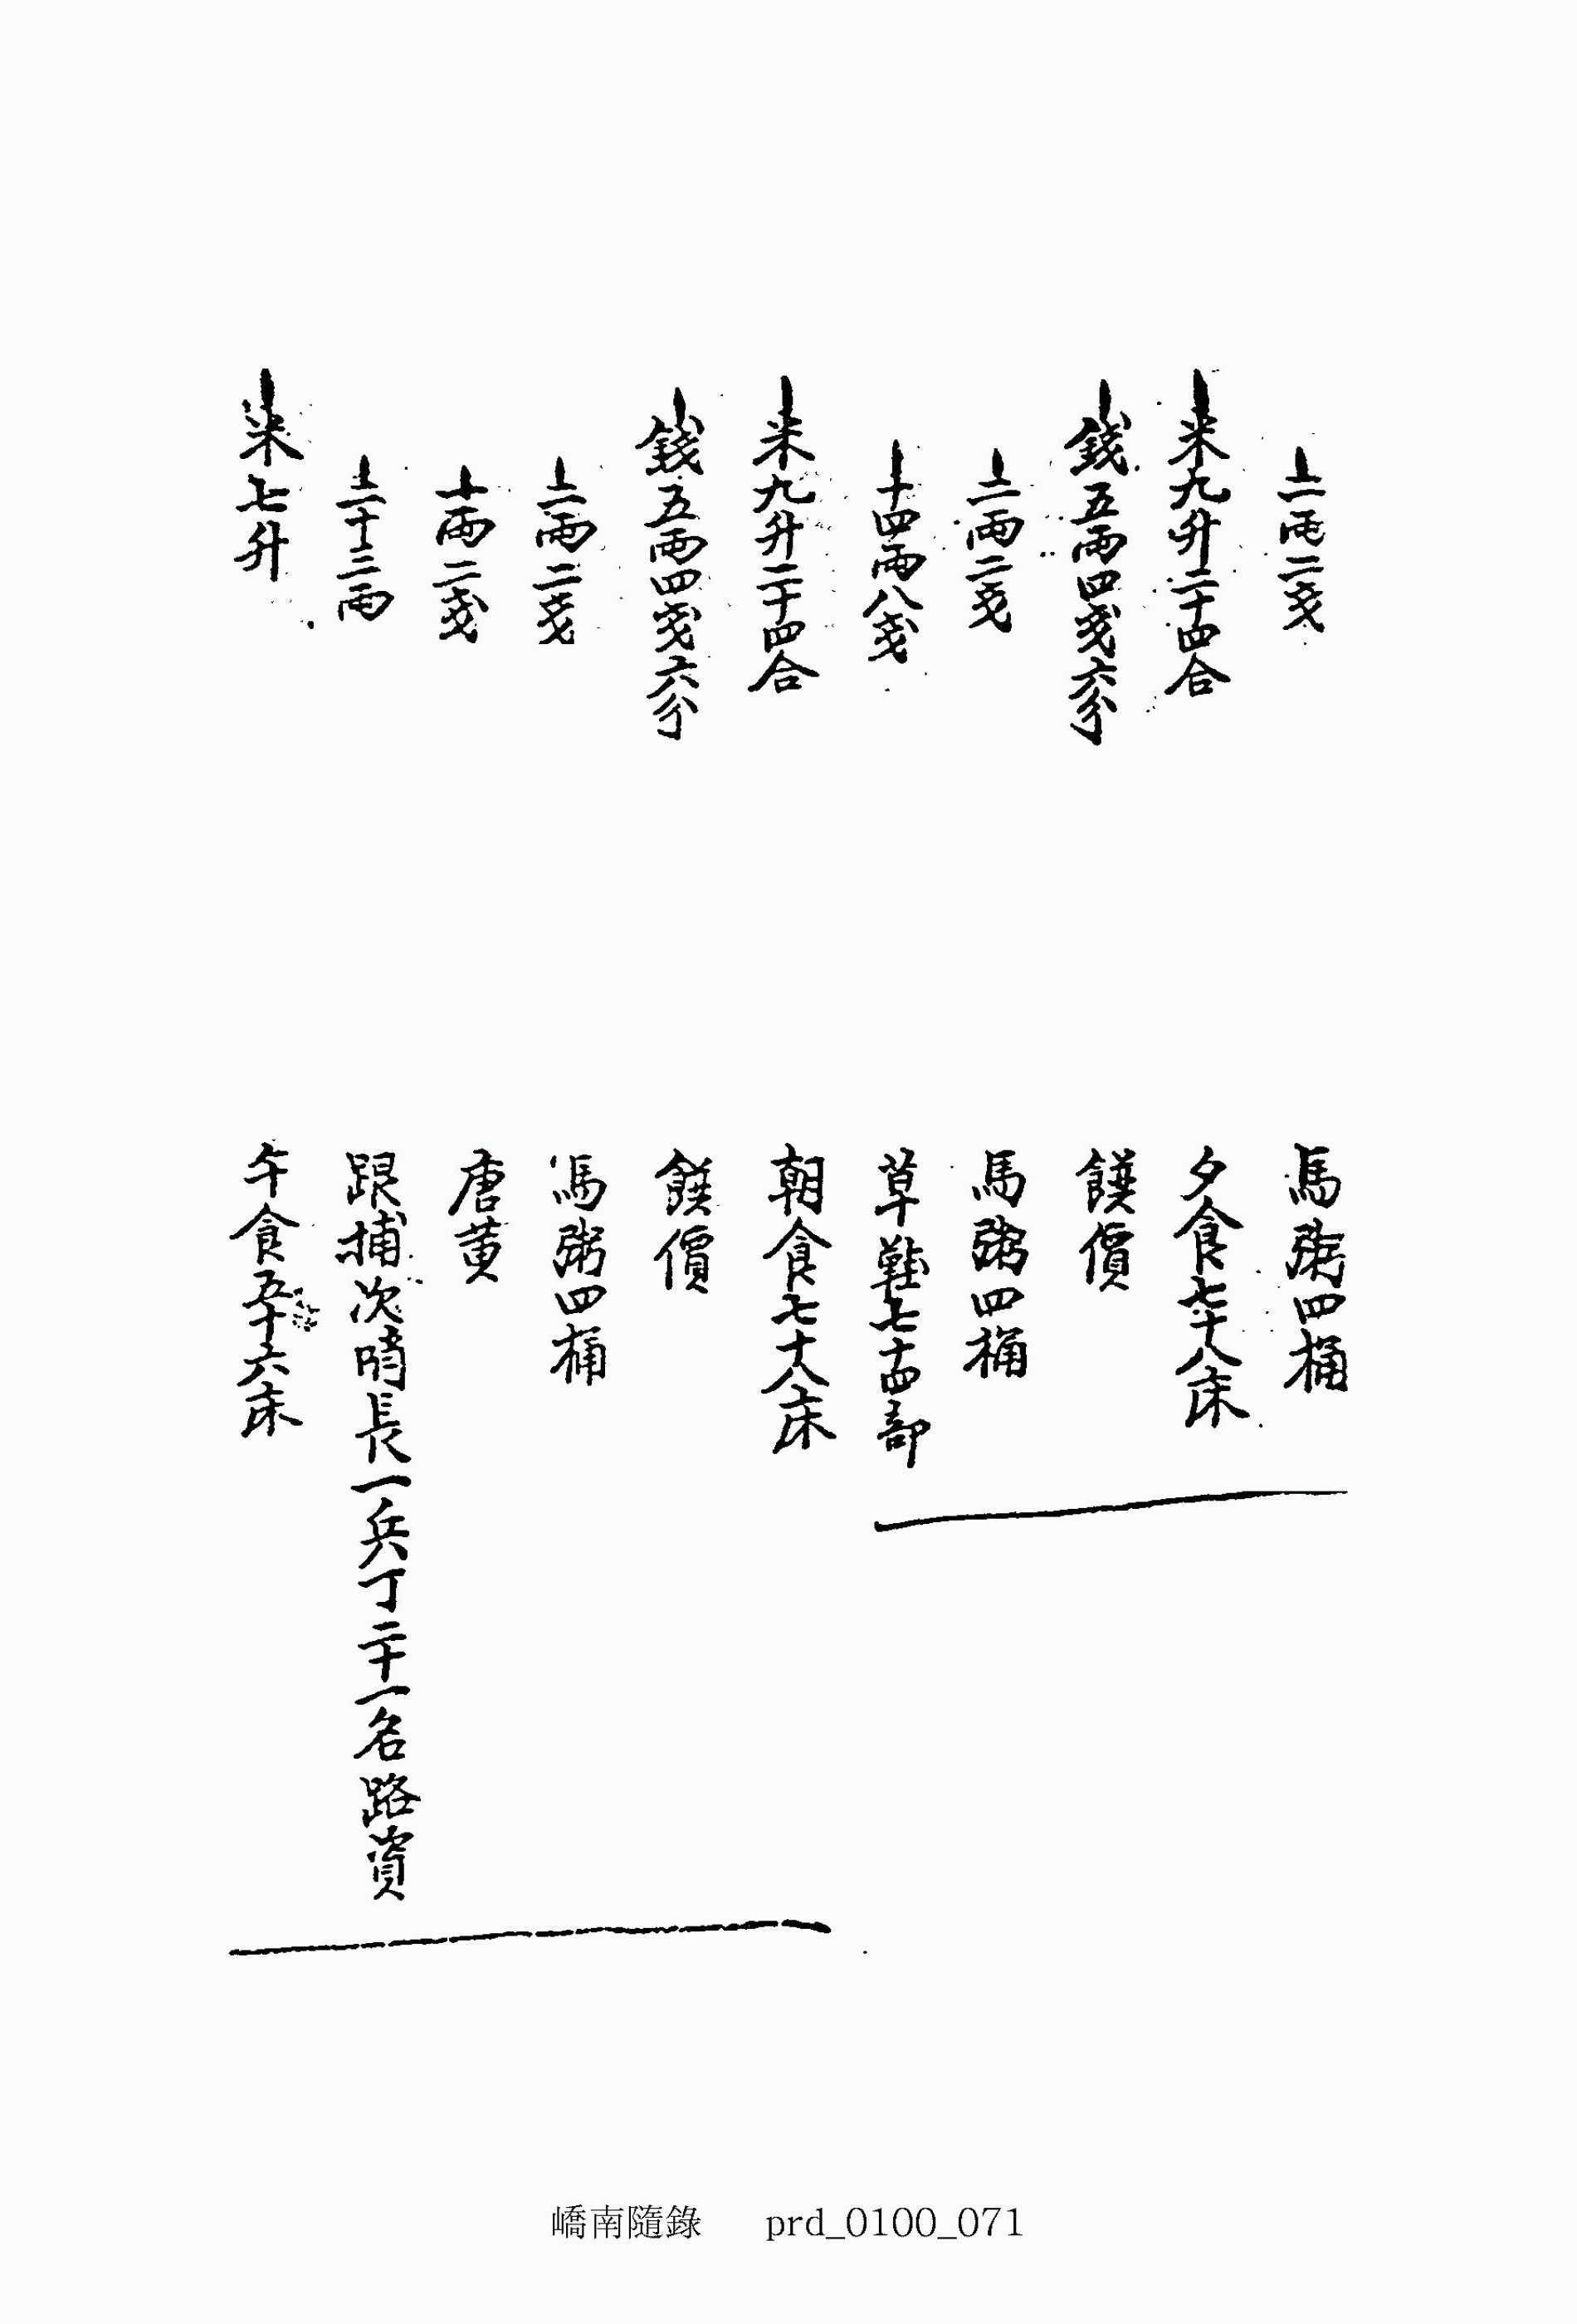 二兩二戔 馬粥四桶
米九升二十四合 夕食七十八床
錢五兩四戔六分 饌價
二兩二戔 馬粥四桶
十四兩八戔 草鞋七十四部
米九升二十四合 朝食七十八床
錢五兩四戔六分 饌價
二兩二戔 馬粥四桶
一兩二戔 唐黄
二十二兩 跟捕次哨長一兵丁二十一名路資
米七升 午食五十六床
嶠南隨錄 prd_0100_071